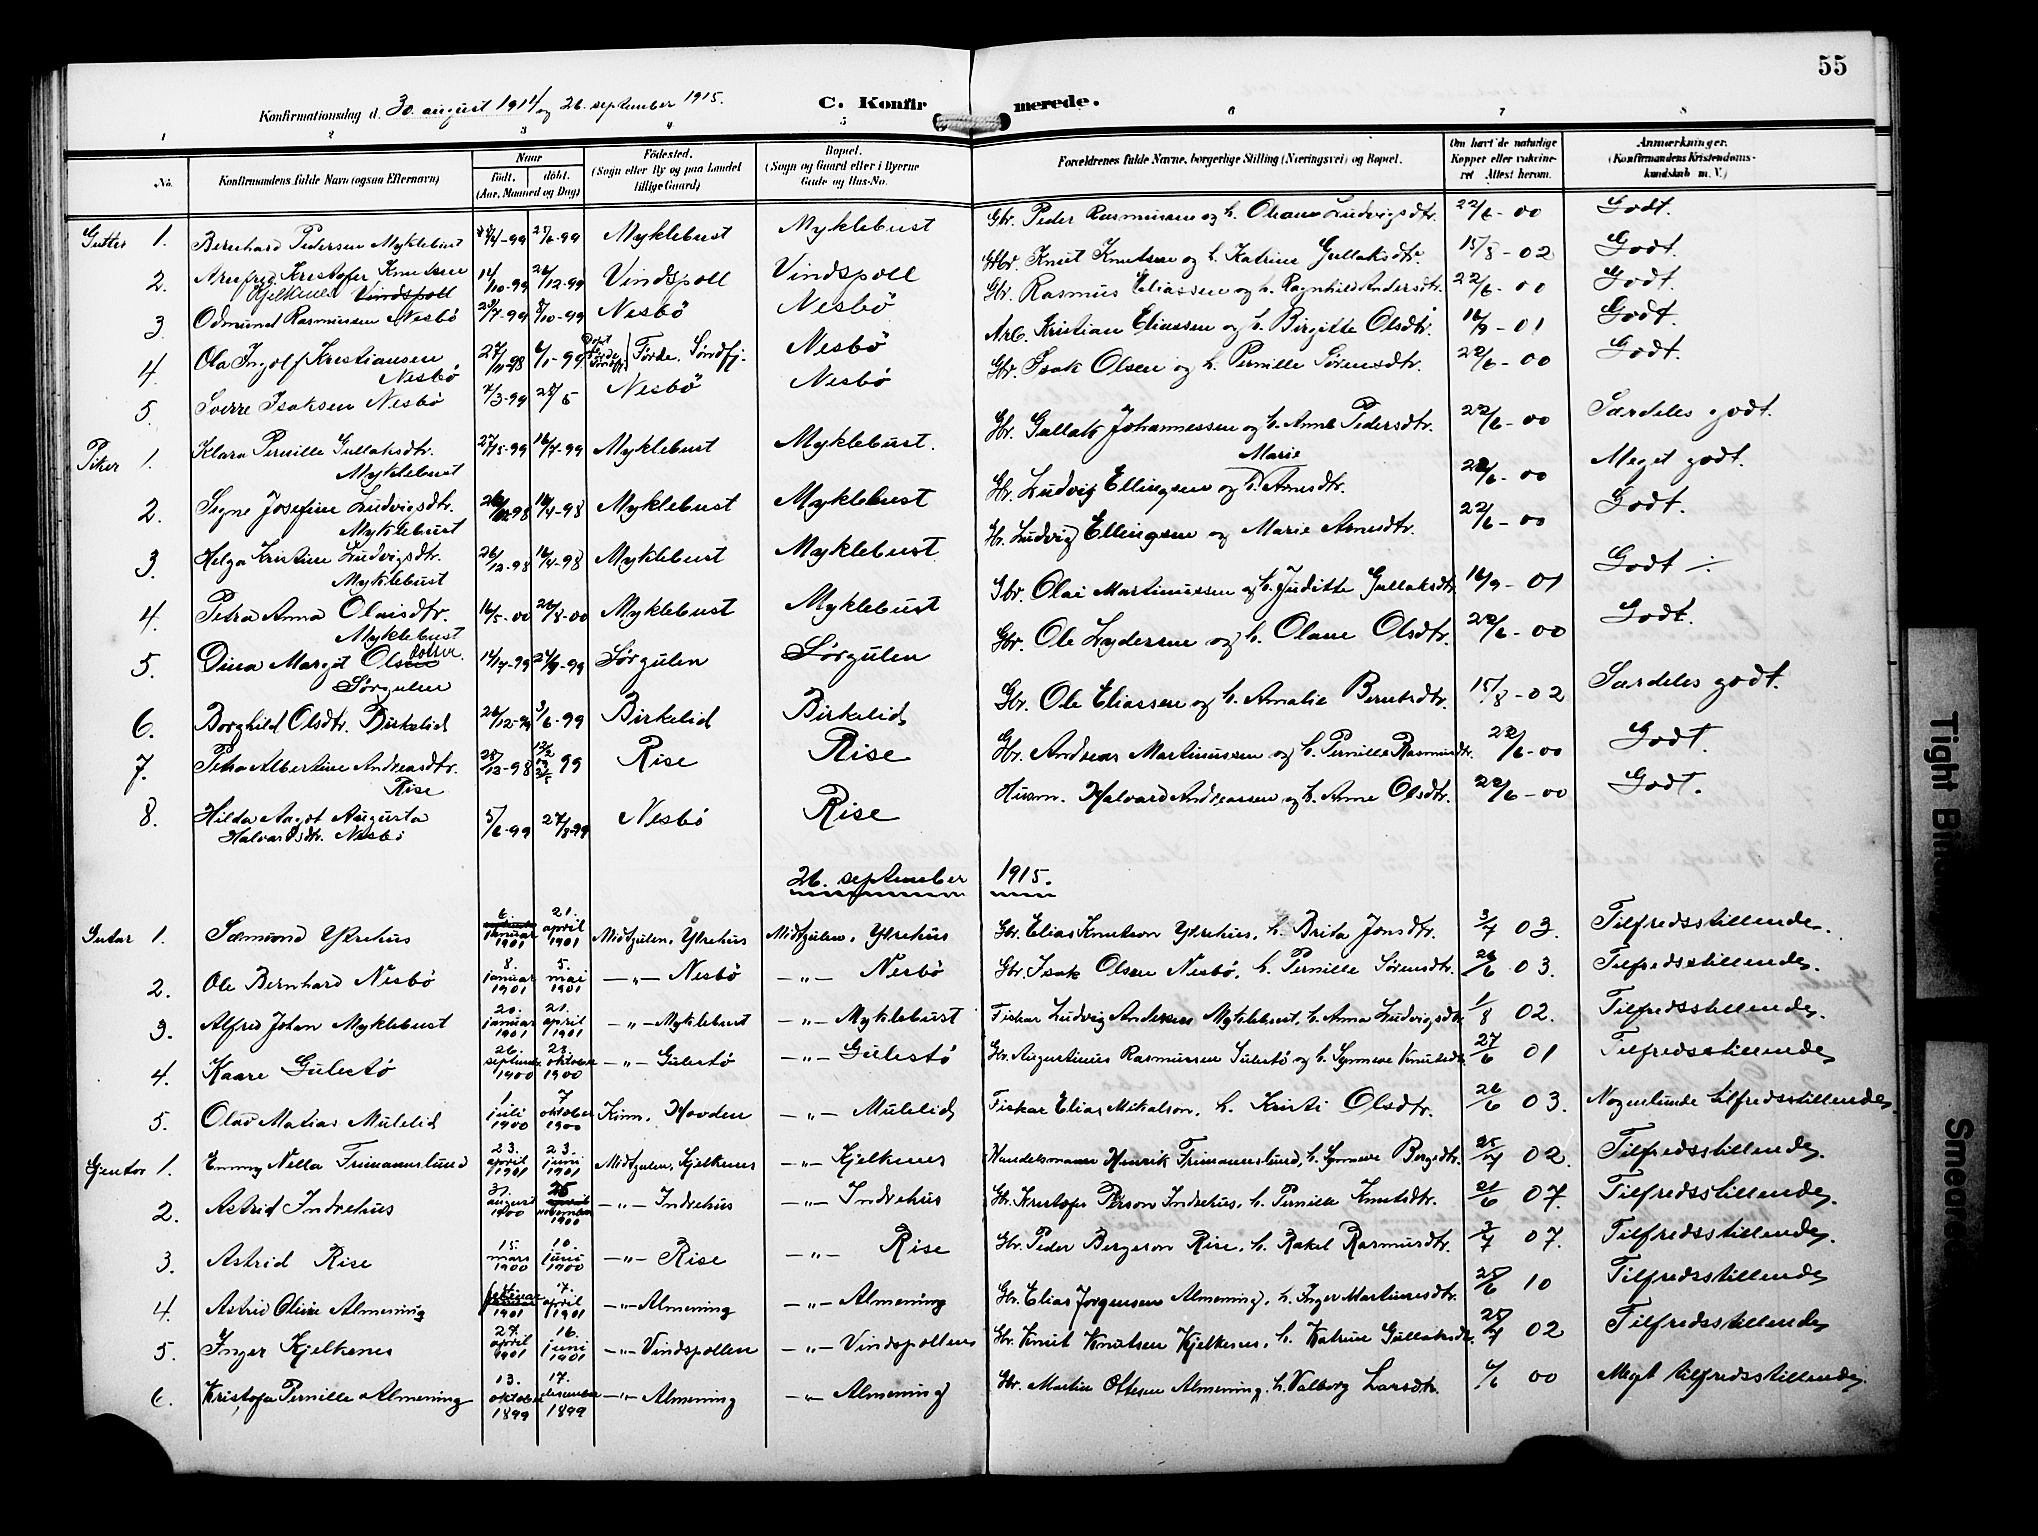 55
Konfirmationsdag d. 30. august 1914 og 26. september 1915.
C. Konfirmerede.
1 2 3 4 5 6 7 8
No. Konfirmandens fulde Navn (ogsaa Efternavn) Naar født. døbt. (Aar, Maaned og Dag) Fødested. (Sogn eller By og paa Landet tillige Gaard) Bopæl. (Sogn og Gaard eller i Byerne Gade og Hus-No. Forældrenes fulde Navne, borgerlige Stilling (Næringsvei) og Bopæl. Om havt de naturlige Kopper eller vaksineret Attest herom. Anmerkninger. (Konfirmandens Kristendomskundskab m. V.)
Gutter 1. Bernhard Pedersen Myklebust Myklebust Myklebust Gbr. Peder Rasmussen og h. Oliane Ludvigsdtr. 22/6 - 00 Godt.
2. Kristofer Knutsen Kjelkenes Vindspoll 14/10-99 26/12-99 Vindspoll Vindspoll Gbr. Knut Knutsen og h. Katrine Gullaksdtr. 15/8 - 02 Godt.
3. Odmund Rasmussen Nesbö 8/10-99 Nesbö Nesbö Gbr. Rasmus Eliassen og h. Ragnhild Andersdtr. 22/6 - 00 Godt.
4. Ola Ingolf Kristiansen Nesbö 27/11-98 6/1-99 Førde, Søndfj. Nesbö Arb. Kristian Eliassen og h. Birgitte Olsdtr. 16/9 - 01 Godt.
5. Sverre Isaksen Nesbö 7/3-99 Nesbö Nesbö Gbr. Isak Olsen og h. Pernille Sørensdtr. 22/6 - 00 Godt.
Piker 1. Klara Pernille Gullaksdtr. Myklebust 27/5-99 16/7-99 Myklebust Myklebust. Gbr. Gullak Johannessen og h. Anne Pedersdtr. 22/6 - 00 Særdeles godt.
2. Signe Josefine Ludvigsdtr. Myklebust 16/4-98 Myklebust Myklebust Gbr. Ludvig Ellingsen og h. Marie Arnesdtr. 22/6 - 00 Meget godt.
3. Helga Kristine Ludvigsdtr. Myklebust 26/12-98 16/4-98 Myklebust Myklebust Gbr. Ludvig Ellingsen og Marie Arnesdtr. 22/6 - 00 Godt.
4. Petra Anna Olaisdtr. Myklebust 16/5-00 26/8-00 Myklebust Myklebust Gbr. Olai Martinussen og h. Juditte Gullaksdtr. 16/9 - 01 Godt
5. Dina Margit Olsdotter. Sörgulen 14/7-99 24/9-99 Sörgulen Sörgulen Gbr. Ole Lydersen og h. Olane Olsdtr. 22/6 - 00 Godt.
6. Borghild Olsdtr. Birkelid 3/6-99 Birkelid Birkelid Gbr. Ole Eliassen og h. Amalie Berntsdtr. 15/8 - 02 Særdeles godt.
7. Petra Albertine Andreasdtr. Rise 28/12-98 99 Rise Rise Gbr. Andreas Martinussen og h. Pernille Rasmusdtr. 22/6 - 00 Godt.
8. Hilda Aagot Augusta Halvardsdtr. Nesbö 5/6-99 27/8-99 Nesbö Rise Husm. Halvard Andreassen og h. Anne Olsdtr. 22/6 - 00 Godt.
26. september 1915.
Gutar 1. Sæmund Ytrehus 6. januar 1901 21. april 1901 Midtgulen, Ytrehus Midtgulen, Ytrehus Gbr. Elias Knutson Ytrehus, h. Brita Jonsdtr. 3/7 03. Tilfredsstillende.
2. Ole Bernhard Nesbö 8. januar 1901 5. mai 1901 —"— Nesbö —"— Nesbö Gbr. Isak Olsen Nesbö, h. Pernille Sörensdtr. 26/6 03. Tilfredsstillende.
3. Alfred Johan Myklebust 20. januar 1901 21. april 1901 —"— Myklebust —"— Myklebust Fiskar Ludvig Andersen Myklebust, h. Anna Ludvigsdtr. 1/8 02. Tilfredsstillende.
4. Kaare Gulestö 26. septembr. 1900 28. oktober 1900 —"— Gulestö —"— Gulestö Gbr. Augustinus Rasmussen Gulestö og h. Synneve Knutsdtr. 27/6 01 Tilfredsstillende
5. Olav Matias Mulelid 1 juli 1900 7 oktober 1900 Kinn, Hovden —"— Mulelid Fiskar Elias Mikalson, h. Kristi Olsdtr. 26/6 03. Nogenlunde tilfredsstillende.
Gjentor 1. Emmy Nella Frimannslund 23. april 1901 23. juni 1901 Midtgulen, Kjelkenes —"— Kjelkenes Handelsmann Henrik Frimannslund, h. Synneve Bergsdtr. 25/7 02. Tilfredsstillende.
2. Astrid Indrehus 31. august 1900 25 november 1900 —"— Indrehus —"— Indrehus Gbr. Kristofer Person Indrehus, h. Pernille Knutsdtr. 21/6 07. Tilfredsstillende.
3. Astrid Rise 15. mars 1900 10. juni 1900 —"— Rise —"— Rise Gbr. Peder Bergeson Rise, h. Rakel Rasmusdtr. 3/7 07. Tilfredsstillende.
4. Astrid Oline Almening februar 1901 17. april 1901 —"— Almening —"— Almening Gbr. Elias Jørgensen Almening, h. Inger Martinusdtr. 25/6 10 Tilfredsstillende
5. Inger Kjelkenes 27. april 1901 16. juni 1901 —"— Vindspollen —"— Vindspollen Gbr. Knut Knutsen Kjelkenes, h. Katrine Gullaksdtr. 25/7 02 Tilfredsstillende
6. Kristofa Pernille Almening 13. oktober 1899 17. desember 1899 —"— Almening —"— Almening Gbr. Martin Ottesen Almening, h. Valborg Larsdtr. 00 Meget tilfredsstillende.
Tight Bin
Smeared